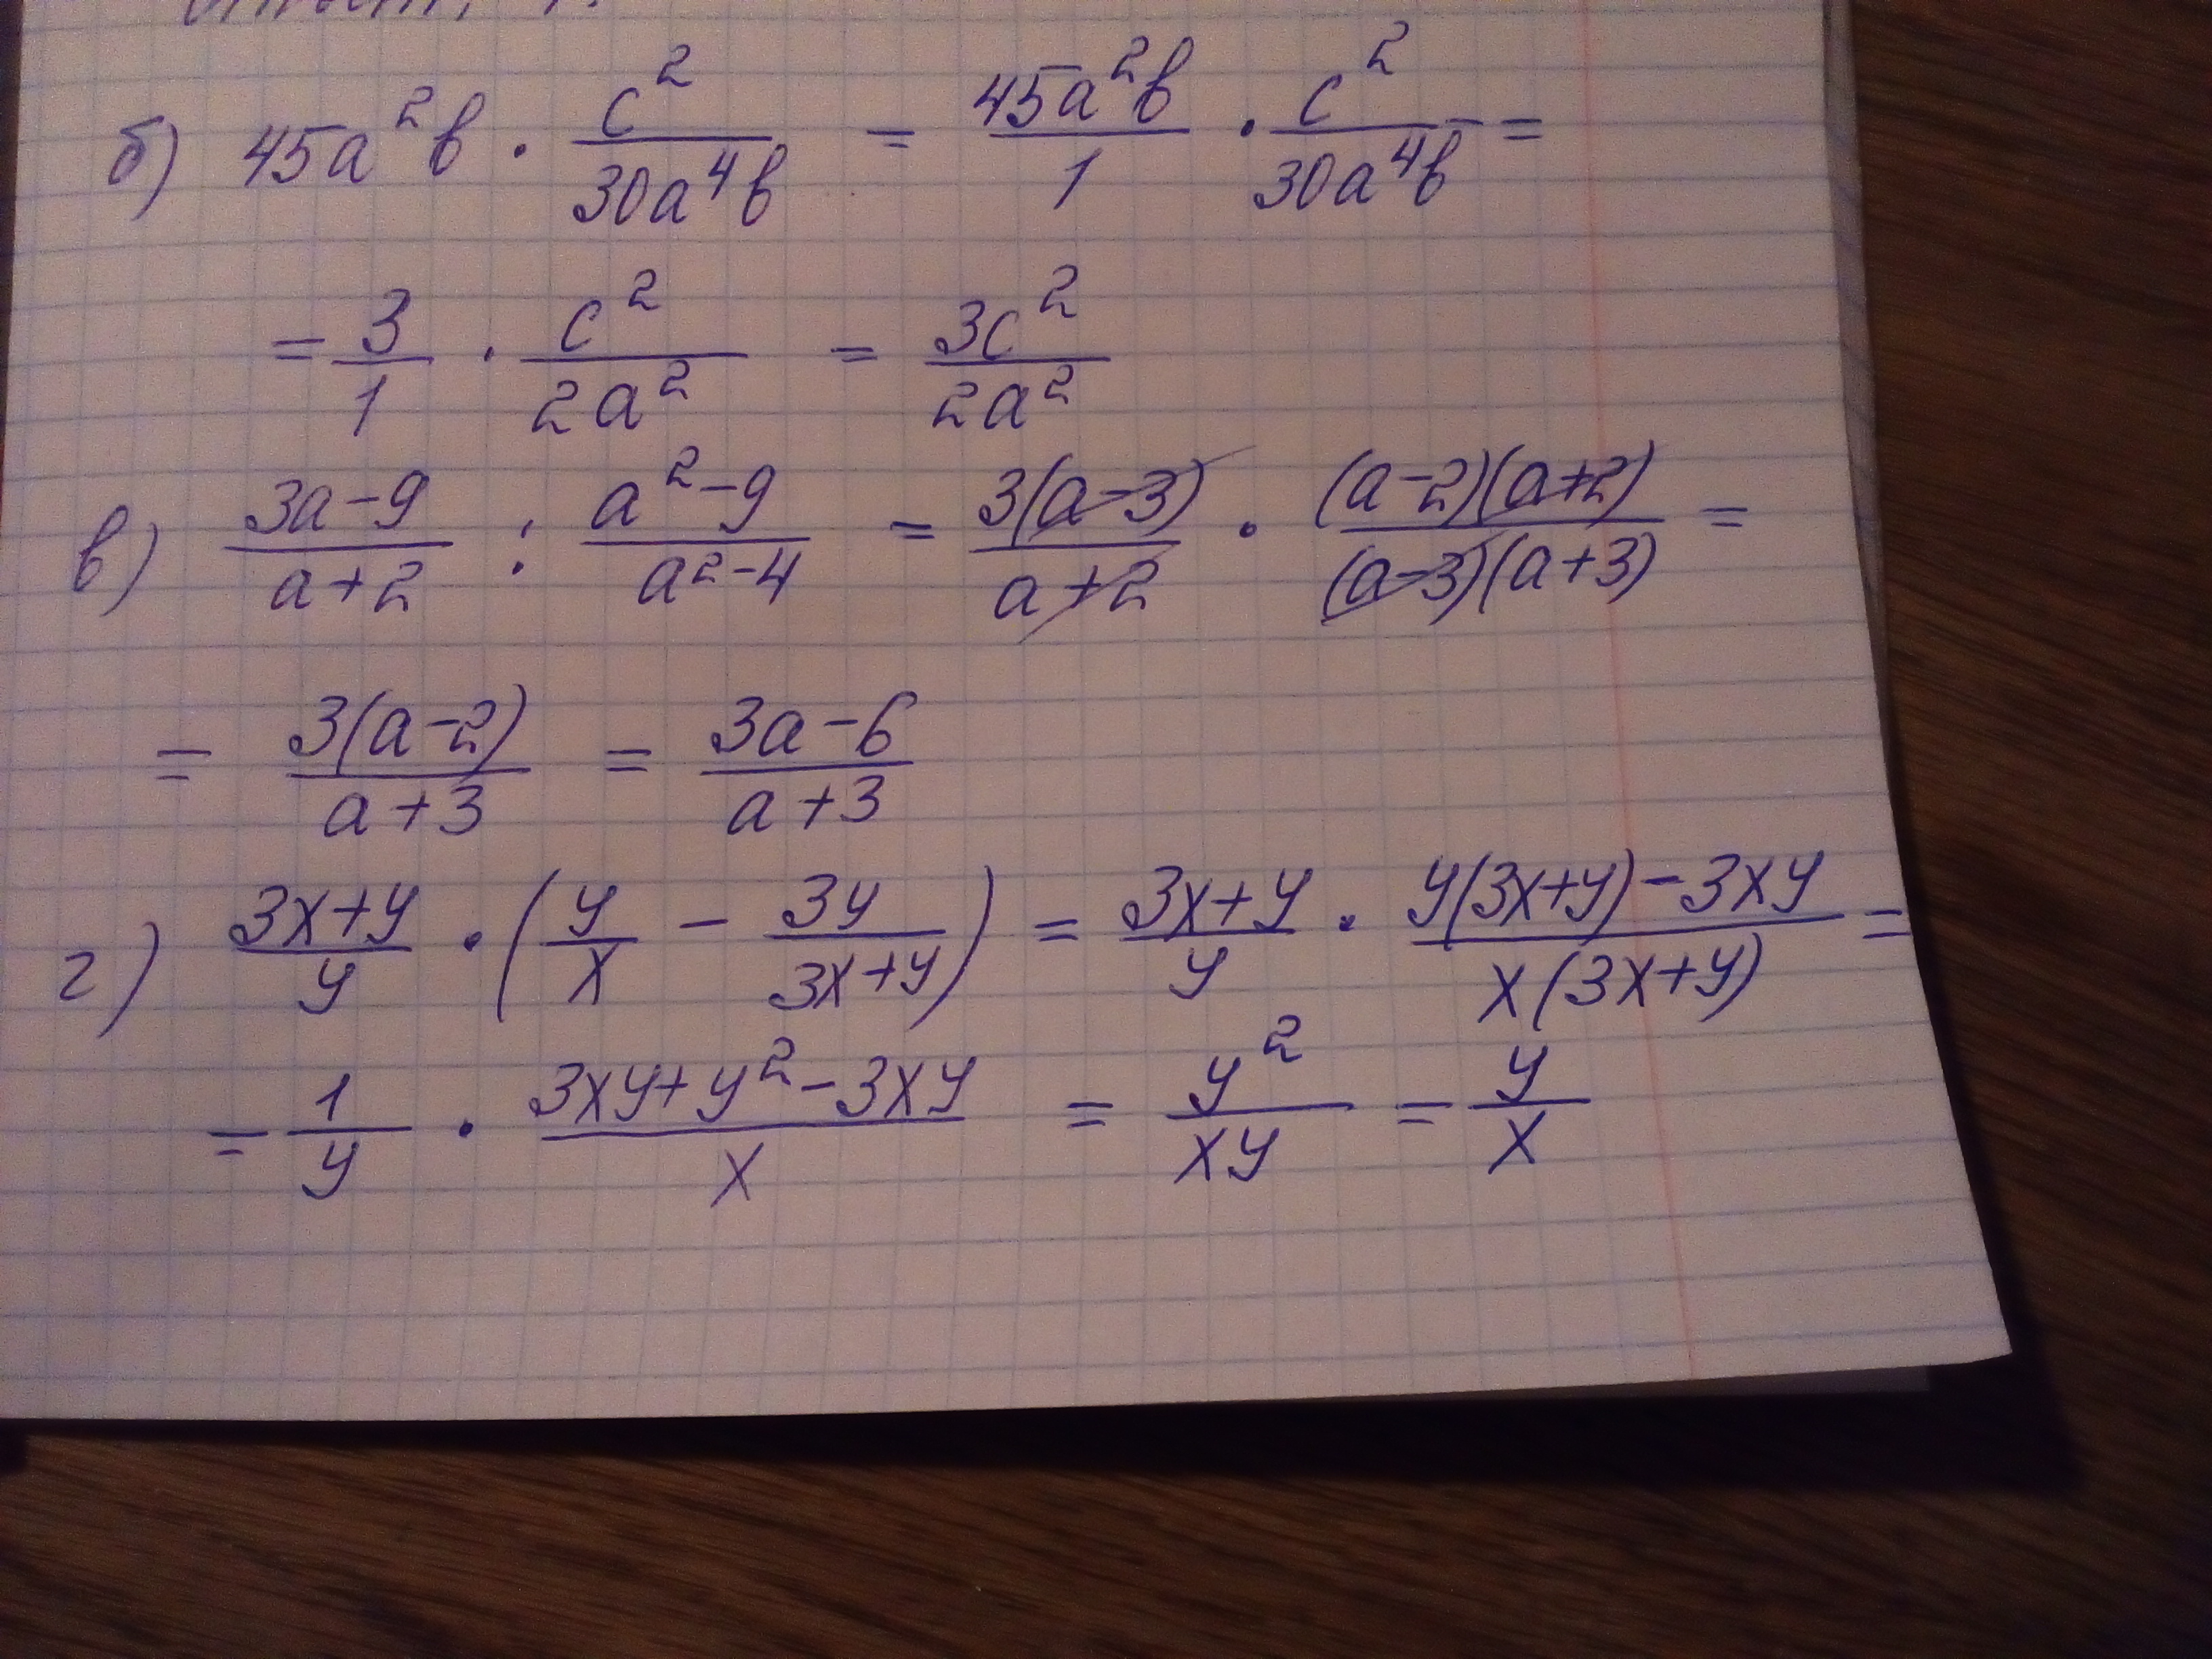 б) 45a²b · c²/30a⁴b = 45a²b/1 · c²/30a⁴b =
= 3/1 · c²/2a² = 3c²/2a²
в) 3a-9/a+2 : a²-9/a²-4 = 3(a-3)/a+2 · (a-2)(a+2)/(a-3)(a+3) =
= 3(a-2)/a+3 = 3a-6/a+3
г) 3x+y/y · (y/x - 3y/3x+y) = 3x+y/y · y(3x+y)-3xy/x(3x+y) =
= 1/y · 3xy+y²-3xy/x = y²/xy = y/x